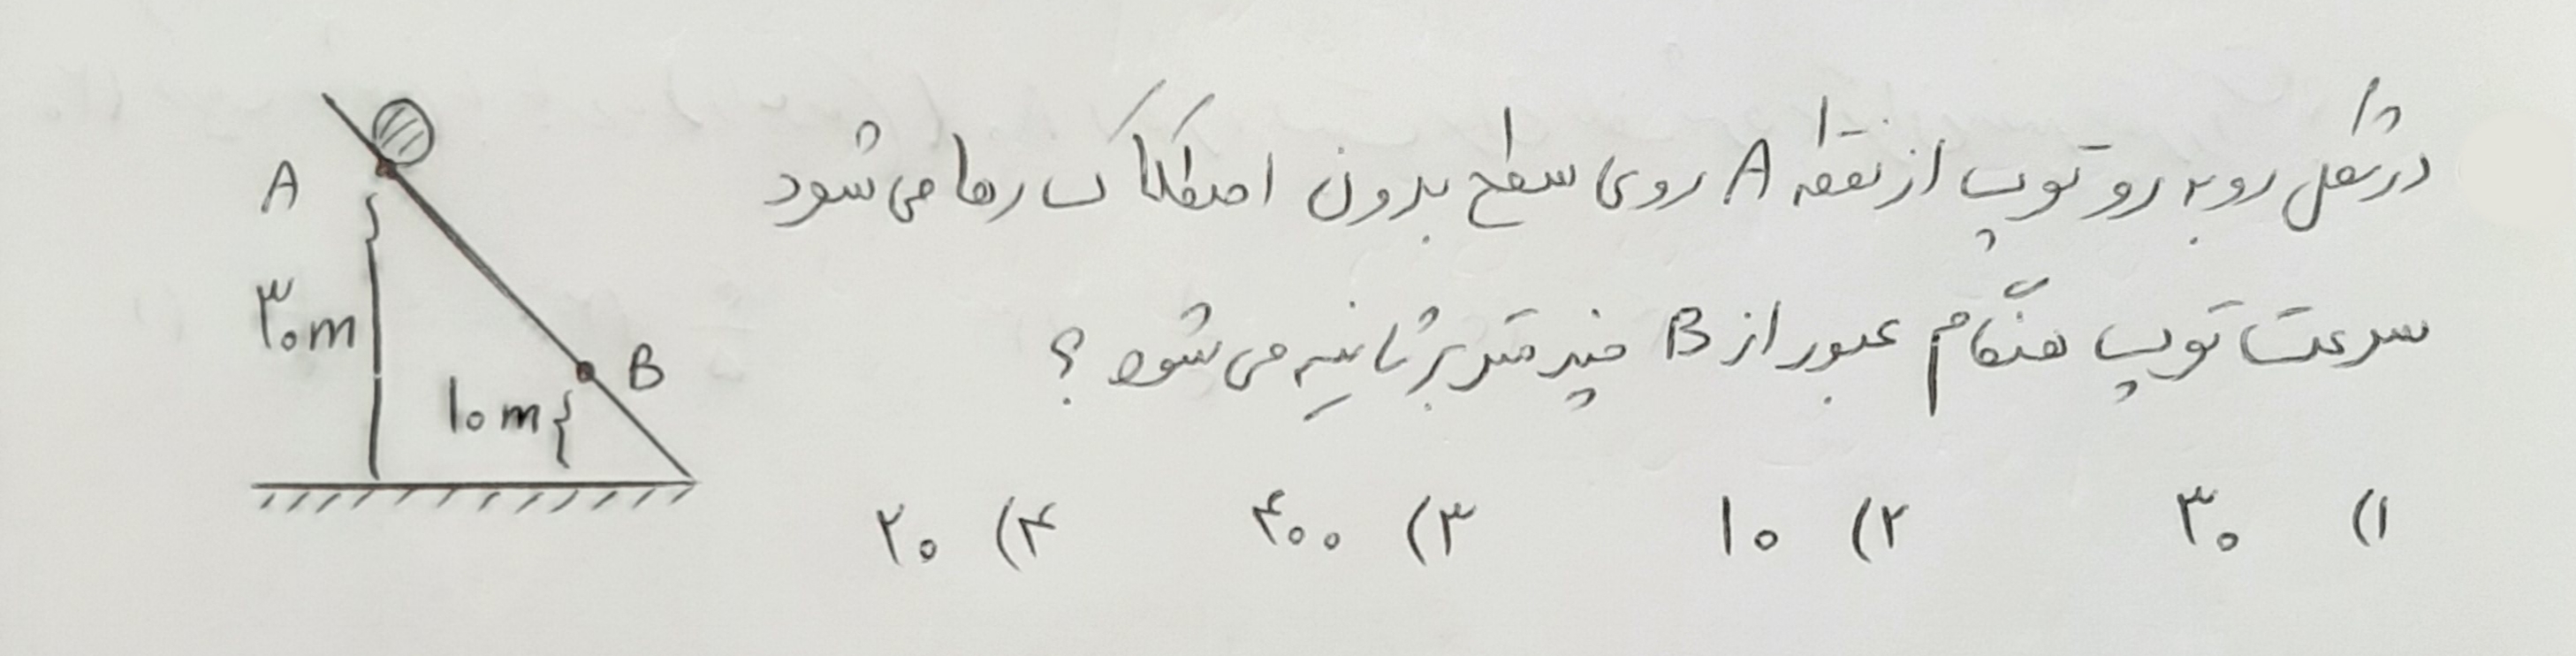 در شکل روبه رو توپ از نقطه A روی سطح بدون اصطکاک رها می شود
سرعت توپ هنگام عبور از B چند متر بر ثانیه می شود ؟
۱) ۳۰ ۲) ۱۰ ۳) ۴۰۰ ۴) ۲۰
A
۳۰m
B
۱۰m